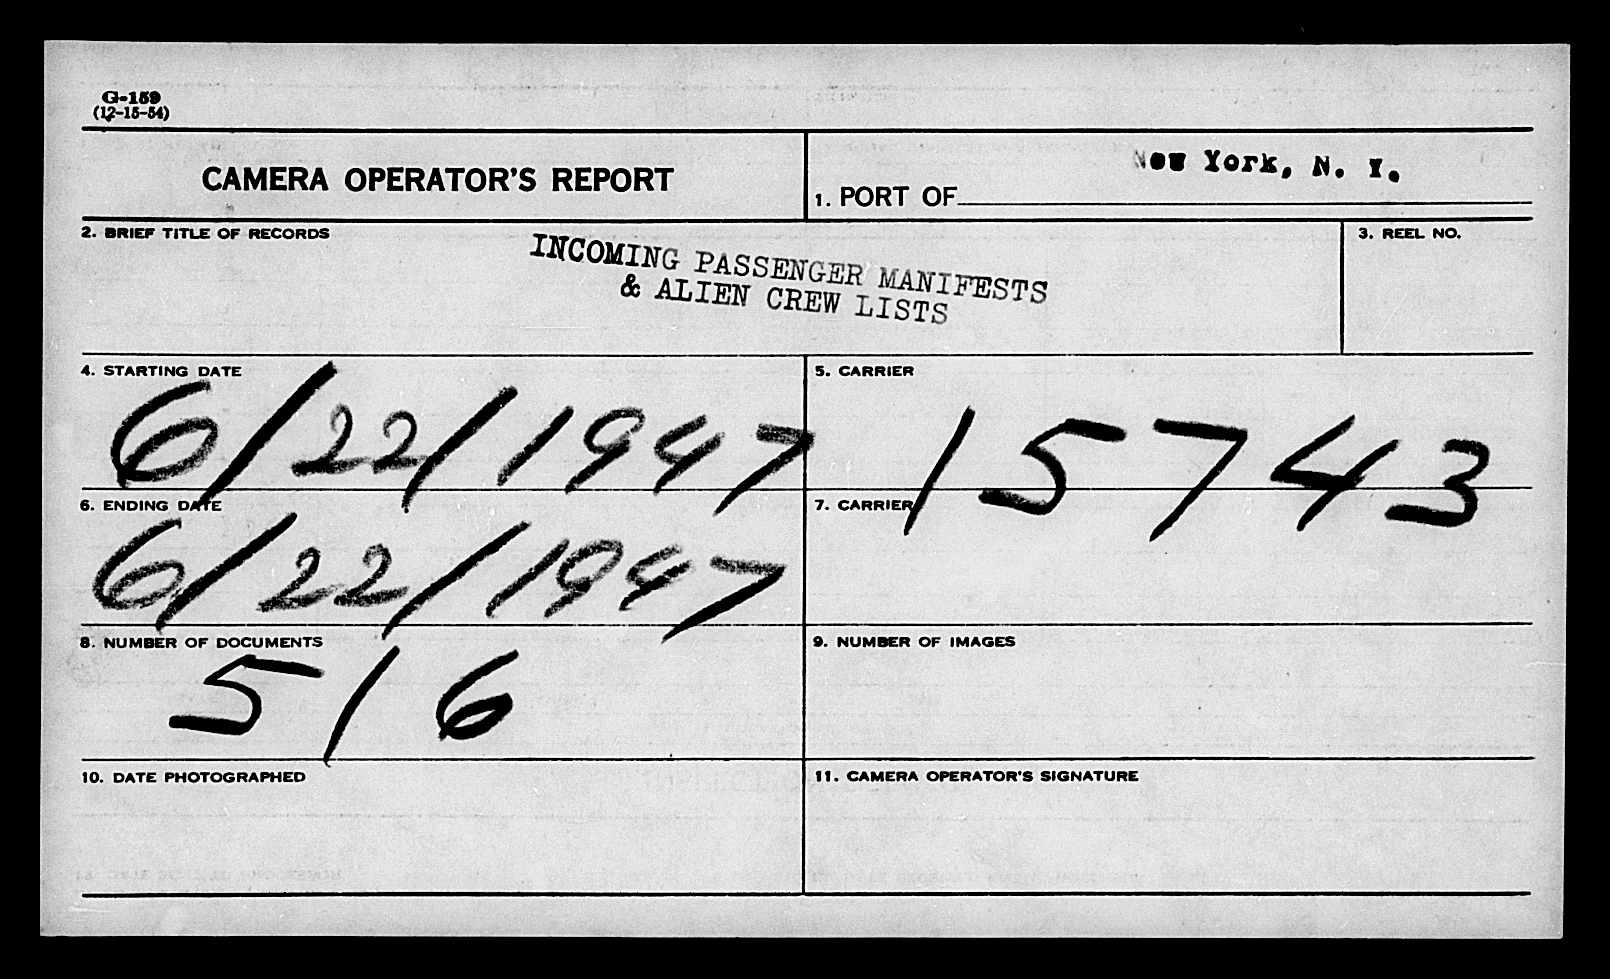 G-159
(12-15-54)
CAMERA OPERATOR'S REPORT
1. PORT OF New York, N. Y.
2. BRIEF TITLE OF RECORDS
INCOMING PASSENGER MANIFESTS
& ALIEN CREW LISTS
3. REEL NO.
4. STARTING DATE
6/22/1947
5. CARRIER
15743
6. ENDING DATE
6/22/1947
7. CARRIER
8. NUMBER OF DOCUMENTS
516
9. NUMBER OF IMAGES
10. DATE PHOTOGRAPHED
11. CAMERA OPERATOR'S SIGNATURE